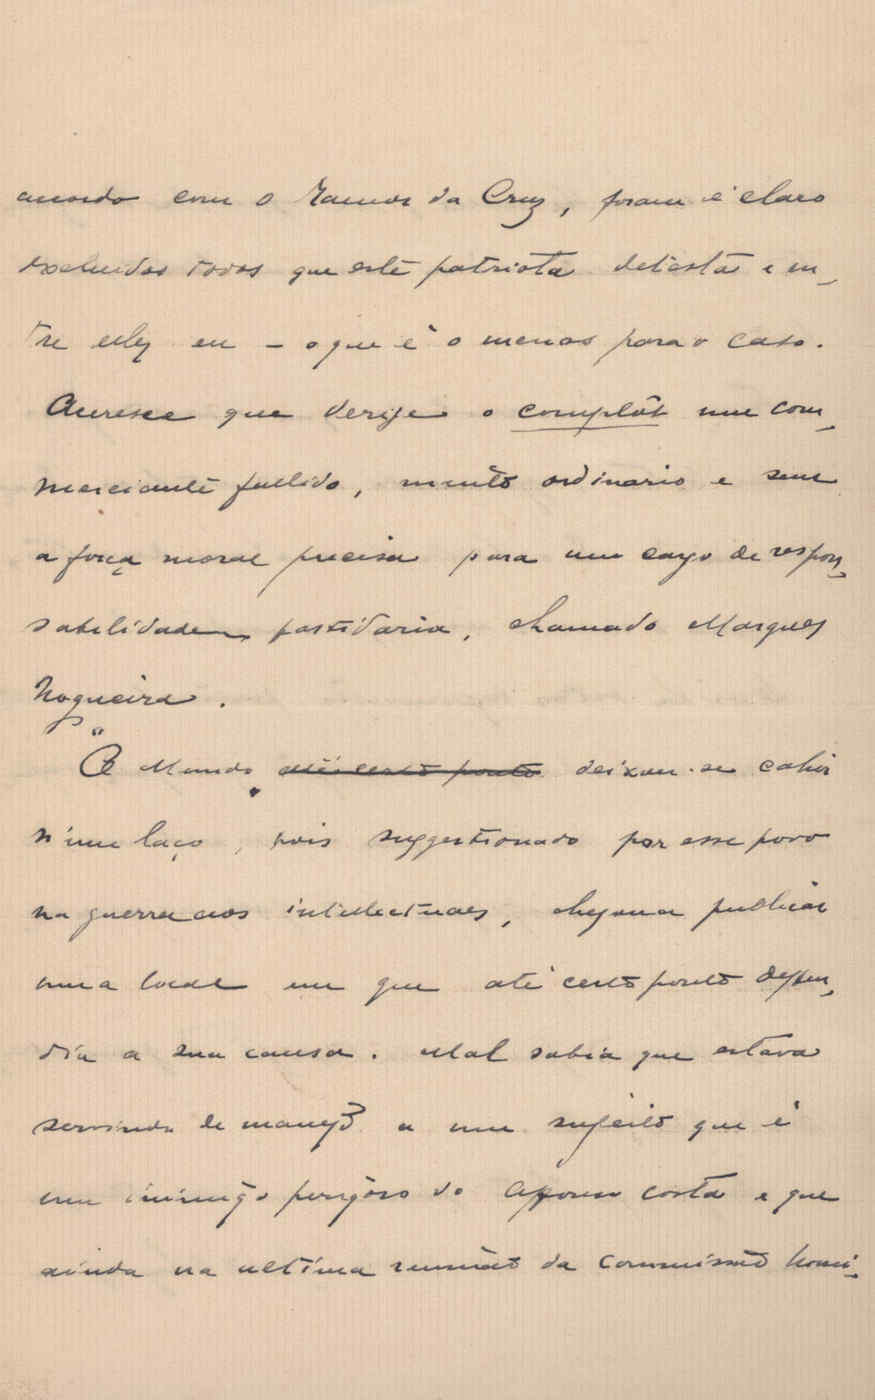 accordo com o Ramos da Cruz, foram é claro
excluidos todos que este patriota detesta e en-
tre elles eu - o que é o menos para o caso.
Accresce que derige o complôt um com-
merciante fallido, muito ordinario e sem
a força moral precisa para um cargo de respon-
sabilidade partidaria, chamado Marques
Nogueira.
O "Mundo" até certo ponto deixou-se cahir
n'um laço, pois suggestionado por esse povo
na guerra aos intellectuaes, chegou a publicar
uma local em que até certo ponto defen-
dia a sua causa. Mal sabia que estava
servindo de manejo a um sujeito que é
um inimigo perigoso do Affonso Costa e que
ainda na ultima reunião da Commissão Muni-